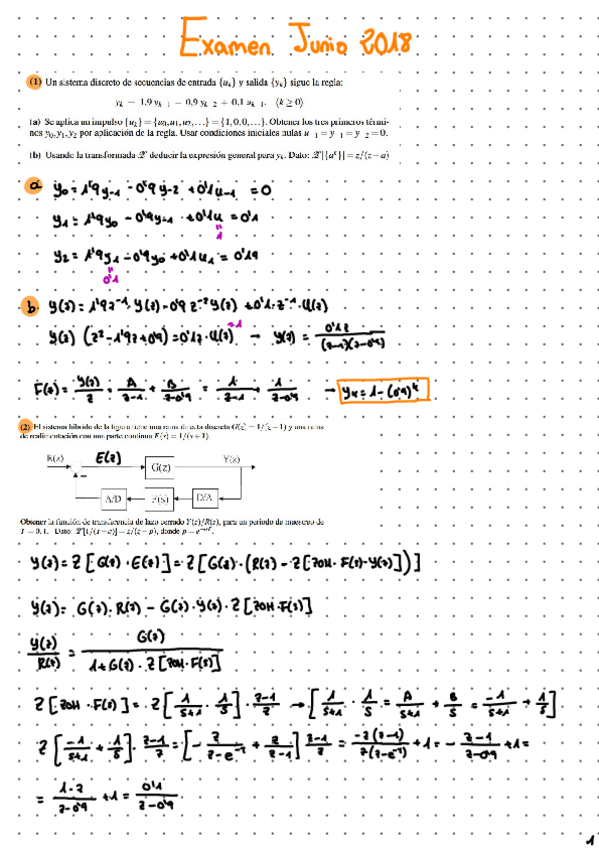 Examen Junio 2018
(1) Un sistema discreto de secuencias de entrada {uₖ} y salida {yₖ} sigue la regla:
yₖ = 1,9 yₖ₋₁ − 0,9 yₖ₋₂ + 0,1 uₖ₋₁, (k ≥ 0)
(a) Se aplica un impulso {uₖ} = {u₀, u₁, u₂, …} = {1, 0, 0, …}. Obtener los tres primeros térmi-
nos y₀, y₁, y₂ por aplicación de la regla. Usar condiciones iniciales nulas u₋₁ = y₋₁ = y₋₂ = 0.
(b) Usando la transformada 𝒵 deducir la expresión general para yₖ. Dato: 𝒵[{aᵏ}] = z/(z − a)
a y₀ = 1'9y₋₁ - 0'9y₋₂ + 0'1u₋₁ = 0
y₁ = 1'9y₀ - 0'9y₋₁ + 0'1u = 0'1
"
1
y₂ = 1'9y₁ - 0'9y₀ + 0'1u₁ = 0'19
"
0'1
b y(z) = 1'9z⁻¹·y(z) - 0'9 z⁻²y(z) + 0'1·z⁻¹·U(z)
y(z) (z² - 1'9z + 0'9) = 0'1z·U(z) 1 → y(z) = 0'1z / (z-1)(z-0'9)
F(z) = y(z)/z = A/z-1 + B/z-0'9 = 1/z-1 + 1/z-0'9 → yₖ = 1 - (0'9)ᵏ
(2) El sistema híbrido de la figura tiene una rama directa discreta G(z) = 1/(z − 1) y una rama
de realimentación con una parte continua F(s) = 1/(s + 1)
R(z) E(z) G(z) Y(z)
−
A/D F(s) D/A
Obtener la función de transferencia de lazo cerrado Y(z)/R(z), para un periodo de muestreo de
T = 0,1. Dato: 𝒵[1/(s − a)] = z/(z − p), donde p = eᵃᵀ.
y(z) = Z[G(z)·E(z)] = Z[G(z)·(R(z) - Z[ZOH·F(s)·y(z)])]
y(z) = G(z)·R(z) - G(z)·y(z)·Z[ZOH·F(s)]
y(z)/R(z) = G(z) / 1+G(z)·Z[ZOH·F(s)]
Z[ZOH·F(s)] = Z[1/s+1 · 1/s]· z-1/z → [1/s+1 · 1/s = A/s+1 + B/s = -1/s+1 + 1/s]
Z[-1/s+1 + 1/s]· z-1/z = [- z/z-e⁻ᵀ + z/z-1] z-1/z = -z(z-1)/z(z-e⁻ᵀ) + 1 = - z-1/z-0'9 + 1 =
= 1-z/z-0'9 + 1 = 0'1/z-0'9
1